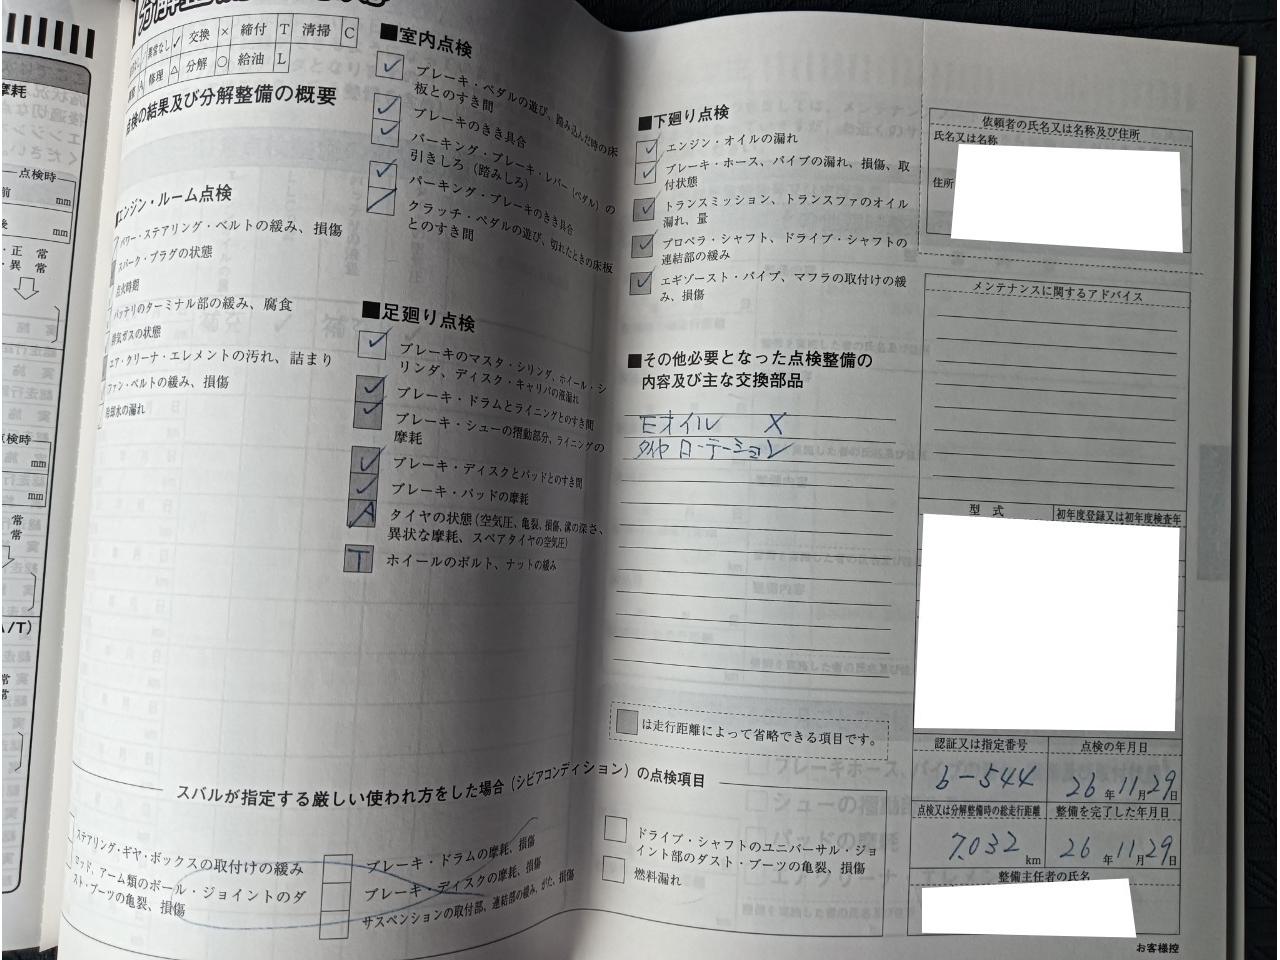 異常なし ✓ 交換 × 締付 T 清掃 C
修理 △ 分解 ○ 給油 L
点検の結果及び分解整備の概要
■エンジン・ルーム点検
パワー・ステアリング・ベルトの緩み、損傷
スパーク・プラグの状態
点火時期
バッテリのターミナル部の緩み、腐食
排気ガスの状態
エア・クリーナ・エレメントの汚れ、詰まり
ファン・ベルトの緩み、損傷
冷却水の漏れ
■室内点検
✓ ブレーキ・ペダルの遊び、踏み込んだ時の床
板とのすき間
✓ ブレーキのきき具合
✓ パーキング・ブレーキ・レバー(ペダル)の
引きしろ(踏みしろ)
✓ パーキング・ブレーキのきき具合
クラッチ・ペダルの遊び、切れたときの床板
とのすき間
■足廻り点検
✓ ブレーキのマスタ・シリンダ、ホイール・シ
リンダ、ディスク・キャリパの液漏れ
✓ ブレーキ・ドラムとライニングとのすき間
✓ ブレーキ・シューの摺動部分、ライニングの
摩耗
✓ ブレーキ・ディスクとパッドとのすき間
✓ ブレーキ・パッドの摩耗
A タイヤの状態(空気圧、亀裂、損傷、溝の深さ、
異状な摩耗、スペアタイヤの空気圧)
T ホイールのボルト、ナットの緩み
■下廻り点検
✓ エンジン・オイルの漏れ
✓ ブレーキ・ホース、パイプの漏れ、損傷、取
付状態
✓ トランスミッション、トランスファのオイル
漏れ、量
✓ プロペラ・シャフト、ドライブ・シャフトの
連結部の緩み
✓ エギゾースト・パイプ、マフラの取付けの緩
み、損傷
■その他必要となった点検整備の
内容及び主な交換部品
Eオイル ×
タイヤローテーション
は走行距離によって省略できる項目です。
スバルが指定する厳しい使われ方をした場合(シビアコンディション)の点検項目
ステアリング・ギヤ・ボックスの取付けの緩み
ロッド、アーム類のボール・ジョイントのダ
スト・ブーツの亀裂、損傷
ブレーキ・ドラムの摩耗、損傷
ブレーキ・ディスクの摩耗、損傷
サスペンションの取付部、連結部の緩み、がた、損傷
ドライブ・シャフトのユニバーサル・ジョ
イント部のダスト・ブーツの亀裂、損傷
燃料漏れ
依頼者の氏名又は名称及び住所
氏名又は名称
住所
メンテナンスに関するアドバイス
型式 初年度登録又は初年度検査年
認証又は指定番号 点検の年月日
6-544 26年11月29日
点検又は分解整備時の総走行距離 整備を完了した年月日
7,032 km 26年11月29日
整備主任者の氏名
お客様控